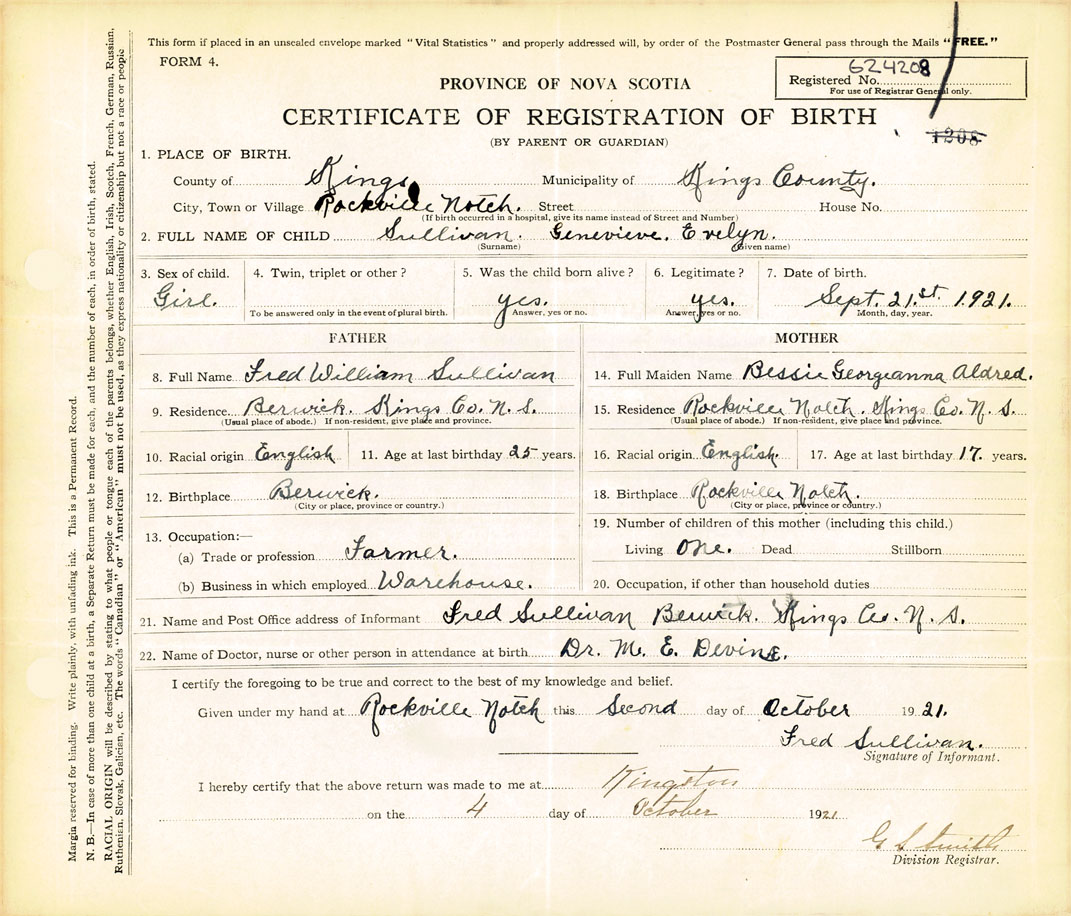 This form if placed in an unsealed envelope marked "Vital Statistics" and properly addressed will, by order of the Postmaster General pass through the Mails "FREE."
FORM 4.
624208
Registered No.
For use of Registrar General only.
PROVINCE OF NOVA SCOTIA
CERTIFICATE OF REGISTRATION OF BIRTH
1208
(BY PARENT OR GUARDIAN)
1. PLACE OF BIRTH.
County of Kings Municipality of Kings County.
City, Town or Village Rockville Notch. Street House No.
(If birth occurred in a hospital, give its name instead of Street and Number)
2. FULL NAME OF CHILD Sullivan. Genevieve. Evelyn.
(Surname) (Given name)
3. Sex of child. 4. Twin, triplet or other? 5. Was the child born alive? 6. Legitimate? 7. Date of birth.
Girl. yes. yes. Sept. 21.st 1921.
To be answered only in the event of plural birth. Answer, yes or no. Answer, yes or no. Month, day, year.
FATHER
8. Full Name Fred William Sullivan
9. Residence Berwick. Kings Co. N. S.
(Usual place of abode.) If non-resident, give place and province.
10. Racial origin English 11. Age at last birthday 25 years.
12. Birthplace Berwick.
(City or place, province or country.)
13. Occupation:—
(a) Trade or profession Farmer.
(b) Business in which employed Warehouse.
MOTHER
14. Full Maiden Name Bessie Georgeanna Aldred.
15. Residence Rockville Notch. Kings Co. N. S.
(Usual place of abode.) If non-resident, give place and province.
16. Racial origin English. 17. Age at last birthday 17. years.
18. Birthplace Rockville Notch.
(City or place, province or country.)
19. Number of children of this mother (including this child.)
Living One. Dead Stillborn
20. Occupation, if other than household duties
21. Name and Post Office address of Informant Fred Sullivan Berwick. Kings Co. N. S.
22. Name of Doctor, nurse or other person in attendance at birth Dr. M. E. Devine.
I certify the foregoing to be true and correct to the best of my knowledge and belief.
Given under my hand at Rockville Notch this Second day of October 1921.
Fred Sullivan.
Signature of Informant.
I hereby certify that the above return was made to me at Kingston
on the 4 day of October 1921
G S Smith
Division Registrar.
Margin reserved for binding. Write plainly, with unfading ink. This is a Permanent Record.
N. B.—In case of more than one child at a birth, a Separate Return must be made for each, and the number of each, in order of birth, stated.
RACIAL ORIGIN will be described by stating to what people or tongue each of the parents belongs, whether English, Irish, Scotch, French, German, Russian,
Ruthenian, Slovak, Galician, etc. The words "Canadian" or "American" must not be used, as they express nationality or citizenship but not a race or people